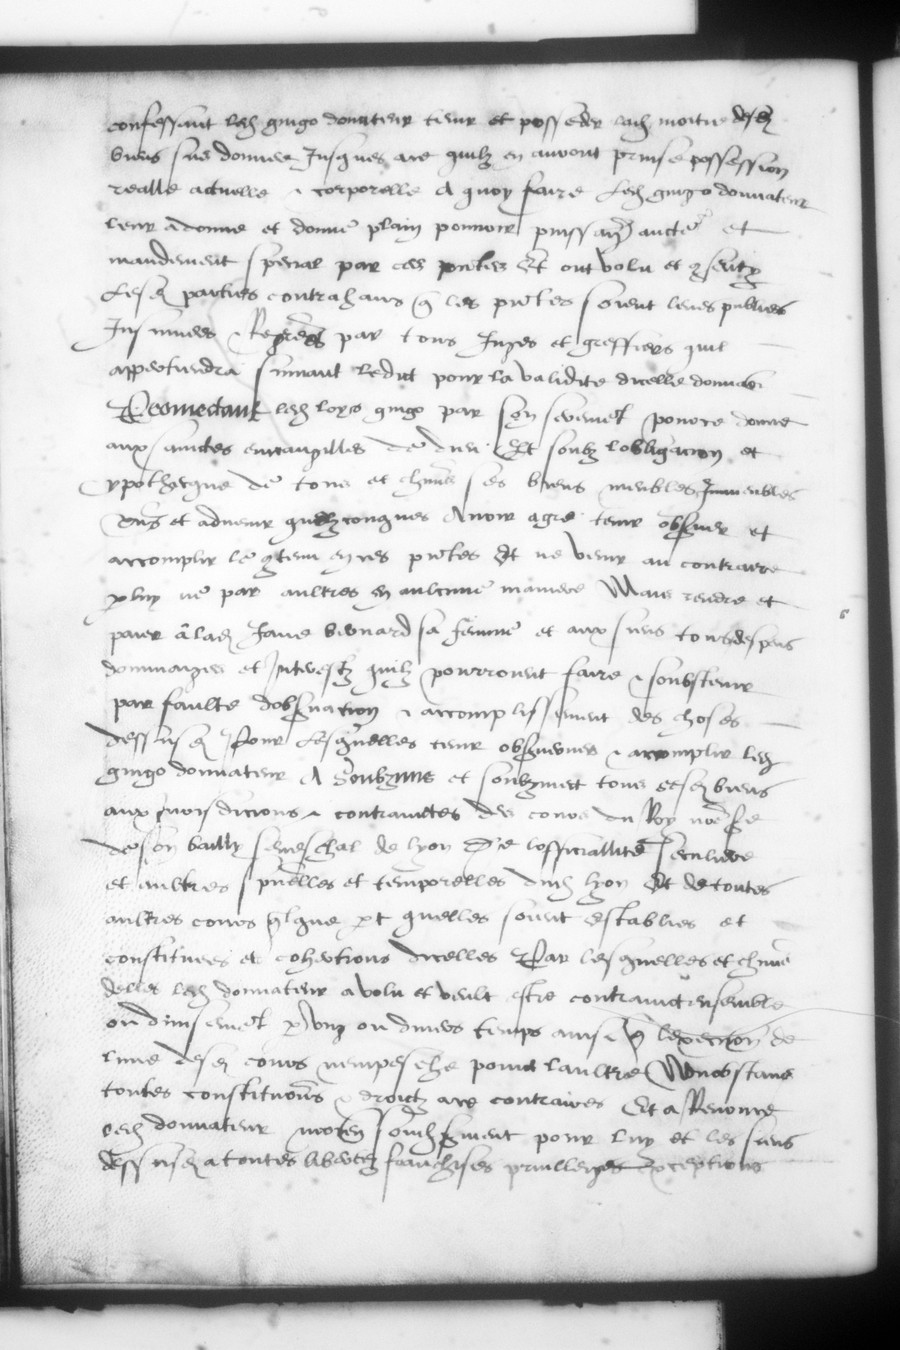 confessant led gingo donateur tenir et posseder lad moitie desd
biens sus donnee Jusques ace quilz en auront prinse possession
realle actuelle & corporelle A quoy faire Led gingo donnateur
leur a donne et donne plain pouvoir puissan aucte et
mandement special par ces pntes Et ont volu et
Lesd parties contrahans q les pntes soient leues publiees
Insinuees & Regrees par tous Juges et greffiers quil
appertiendra suivant ledict pour la validite dicelle donnaon
Promectant led loys gingo par son serement pource donne
aux sainctes euvangilles de dieu Et soubz lobligacion et
ypothecque de tous et chuns ses biens meubles Immeubles
pns et advenir quelzconques Avoir agre tenir observer et
accomplir le qtenu en ces pntes Et ne venir au contraire
p luy ne par aultres en aulcune maniere Mais rendre et
paier a lad Jane benard sa femme et aux siens tous despens
dommaiges et Interestz quilz pourroient faire & soubstenir
par faulte dobservation & accomplissement des choses
dessusd Pour Lesquelles tenir observer & accomplir led
gingo donnateur A soubzmis et soubzmect tous sesd biens
aux juridicions & contrainctes des cours du Roy nre sre
de son bailly seneschal de lyon De lofficiallite seculiere
et aultres spuelles et temporelles dud lyon Et de toutes
aultres cours qlque pt quelles soient establies et
constituees et cohertions dicelles Par lesquelles et chune
delles led donnateur a volu et veult estre contrainct ensemble
ou divisement p ung ou divers temps ainsi q lexecution de
lune desd cours nempesche point laultre Nonobstant
toutes constitutions & droictz ace contraires Et a Renonce
led donnateur moyen sond serment pour luy et les siens
dessusd a toutes libertez franchises privilleiges exceptions